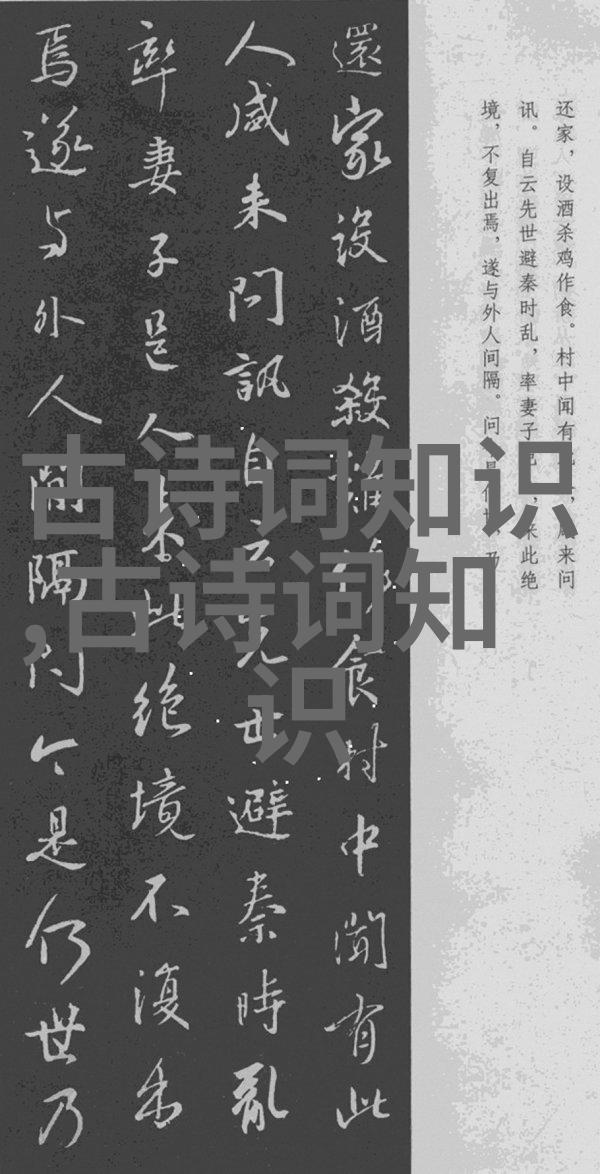 还家，设酒杀鸡作食。村中闻有来问
讯。自云先世避秦时乱，率妻子来此绝
境，不复出焉，遂与外人间隔。问是何乃
還家設酒殺雞作食村中聞有此
人咸来問訊自云先世避秦時亂
率妻子邑人来此絶境不復出
焉遂与外人間隔问今是何世乃
古诗词知识
,古诗词知
识